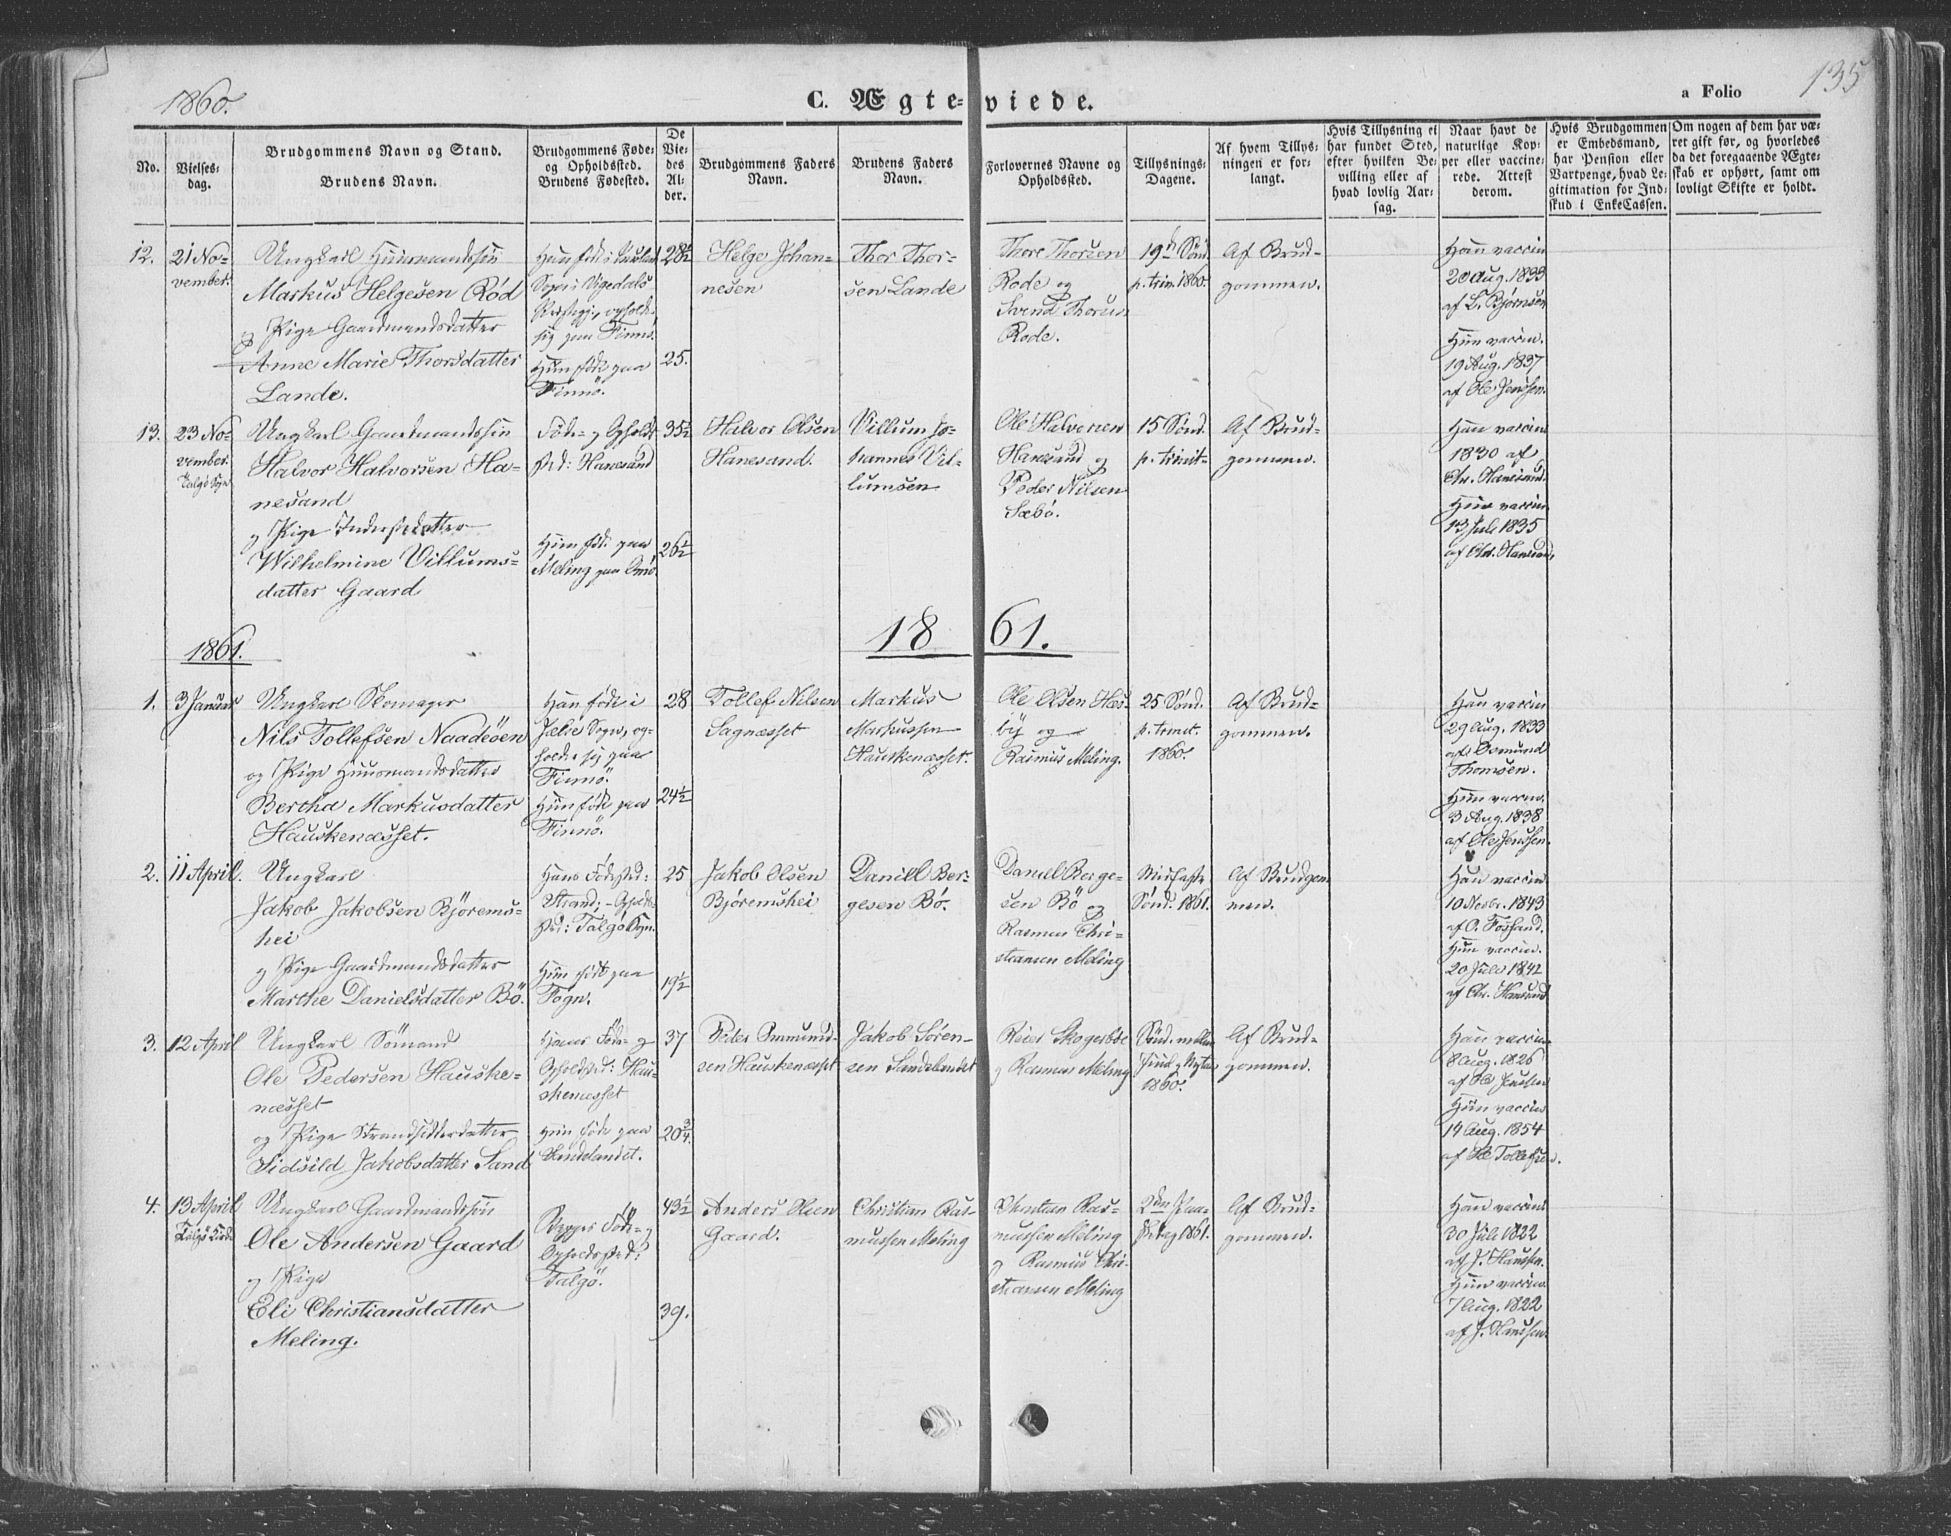 1860.
C. Ægte-viede.
a Folio
135
No.
Vielses-
dag.
Brudgommens Navn og Stand.
Brudens Navn.
Brudgommens Føde-
og Opholdssted.
Brudens Fødested.
De
Vie-
des
Al-
der.
Brudgommens Faders
Navn.
Brudens Faders
Navn.
Forlovernes Navne og
Opholdssted.
Tillysnings-
Dagene.
Af hvem Tillys-
ningen er for-
langt.
Hvis Tillysning ei
har fundet Sted,
efter hvilken Be-
villing eller af
hvad lovlig Aar-
sag.
Naar havt de
naturlige Kop-
per eller vaccine-
rede. Attest
derom.
Hvis Brudgommen
er Embedsmand,
har Pension eller
Vartpenge, hvad Le-
gitimation for Ind-
skud i EnkeCassen.
Om nogen af dem har væ-
ret gift før, og hvorledes
da det foregaaende Ægte-
skab er ophørt, samt om
lovligt Skifte er holdt.
12.
21 No-
vember.
Ungkarl Huusmandssøn
Markus Helgesen Röd
og Pige Gaardmandsdatter
Anne Marie Thorsdatter
Lande.
Han fød i
Sogn i Vigedals
Præstegj., opholdr
sig paa Finnö.
Hun föd paa
Finnö.
28½
25.
Helge Johan-
nesen
Thor Thor-
sen Lande
Thore Thorsen
Rode og
Svend Thorsen
Rode.
19de Sönd.
p. trin. 1860.
Af Brud-
gommen.
Han vaccin.
20 Aug. 1833
af L. Bjørnsen
Hun vaccin.
19 Aug. 1837
af Ole Jenssen.
13.
23 No-
vember.
Talgö Sogn
Ungkarl Gaardmandssön
Halvor Halvorsen Ha-
nesand
og Pige Inderstdatter
Wilhelmine Villums-
datter Gaard
Föde- og Opholds-
sted: Hanesand
Hun föd paa
Meling paa Omö.
35½
26½
Halvor Olsen
Hanesand.
Villum Jo-
hannes Vil-
lumsen
Ole Halvorsen
Hanesand og
Peder Nilsen
Sæbö.
15 Sönd.
p. trinit.
Af Brud-
gommen.
Han vaccin.
1830 af
Chr. Hanesand.
Hun vaccin.
13 Juli 1835
af Chr. Hanesand.
1861.
1861.
1.
3 Januar
Ungkarl Skomager
Nils Tollefsen Naadeöen
og Pige Huusmandsdatter
Bertha Markusdatter
Hauskenæsset.
Han föd i
Jelse Sogn, op-
holdr sig paa
Finnö.
Hun föd paa
Finnö.
28
24½
Tollef Nilsen
Sagnæsset
Markus
Markussen
Hauskenæsset.
Ole Olsen Hæs-
by og
Rasmus Meling.
25 Sönd.
p. trinit.
1860.
Af Brud-
gommen.
Han vaccin.
29 Aug. 1833
af Osmund
Thomsen.
Hun vaccin.
3 Aug. 1838
af Ole Jenssen.
2.
11 April.
Ungkarl
Jakob Jakobsen Björems-
hei
og Pige Gaardmandsdatter
Marthe Danielsdatter Bö.
Hans Fødested:
Strand; Opholds-
sted: Talgö Sogn.
Hun födt paa
Fogn.
25
19½
Jakob Olsen
Björemshei
Daniel Ber-
gesen Bö.
Daniel Berge-
sen Bö og
Rasmus Chri-
stiansen Meling
Midfaste
Sönd. 1861.
Af Brudgom-
men.
Han vaccin.
10 Novbr. 1843
af O. Fossand.
Hun vaccin.
20 Juli 1842
af Chr. Hanesand
3.
12 April
Ungkarl Sömand
Ole Pedersen Hauske-
næsset
og Pige Strandsidderdatter
Sidsild Jakobsdatter Sand
Hans Föde- og
Opholdssted: Hau-
skenæsset
Hun föd paa
Sandelandet.
37
20¾.
Peder Ommund-
sen Hauskenæsset
Jakob Sören-
sen Sandelandet
Reier Skogerböe
og Rasmus Meling
Sönd. mellem
Juul og Nytaar
1860.
Af Brud-
gommen.
Han vaccin.
8 Aug. 1826
af Ole Jenssen
Hun vaccin.
14 Aug. 1854
af Ole Tollefsen.
4.
13 April
Talgö Kirke
Ungkarl Gaardmandssön
Ole Andersen Gaard
og Pige
Eli Christiansdatter
Meling.
Begges Föde- og
Opholdssted:
Talgö.
43½
39.
Anders Olsen
Gaard.
Christian Ras-
mussen Meling
Christian Ras-
mussen Meling
og Rasmus Chri-
stiansen Meling
2den Paa-
skedag 1861.
Af Brud-
gommen.
Han vaccin.
30 Juli 1822
af J. Hanssen.
Hun vaccin.
7 Aug. 1822
af J. Hanssen.